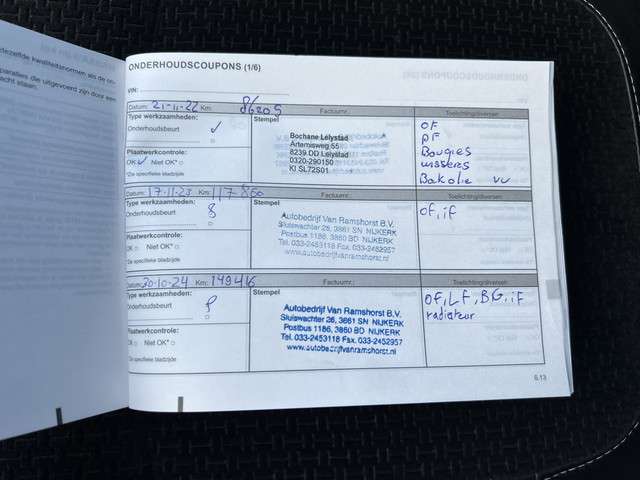 dezelfde kwaliteitsnormen als de on-
paraties die uitgevoerd zijn door een
acht staan:
ONDERHOUDSCOUPONS (1/6)
VIN:
Datum: 21-11-22 Km: 86205 Factuurnr.: Toelichting/diversen
Type werkzaamheden:
Onderhoudsbeurt ✓
Plaatwerkcontrole:
OK ✓ Niet OK*
*Zie specifieke bladzijde
Stempel
Bochane Lelystad
Artemisweg 55
8239 DD Lelystad
0320-290150
KI SL72S01
OF
PF
Bougies
wissers
Bakolie vv
Datum: 17-11-23 Km: 117860 Factuurnr.: Toelichting/diversen
Type werkzaamheden:
Onderhoudsbeurt
Plaatwerkcontrole:
OK Niet OK*
*Zie specifieke bladzijde
Stempel
Autobedrijf Van Ramshorst B.V.
Sluiswachter 26, 3861 SN NIJKERK
Postbus 1186, 3860 BD NIJKERK
Tel. 033-2453118 Fax. 033-2452957
www.autobedrijfvanramshorst.nl
OF, iF
Datum: 30-10-24 Km: 149416 Factuurnr.: Toelichting/diversen
Type werkzaamheden:
Onderhoudsbeurt
Plaatwerkcontrole:
OK Niet OK*
*Zie specifieke bladzijde
Stempel
Autobedrijf Van Ramshorst B.V.
Sluiswachter 26, 3861 SN NIJKERK
Postbus 1186, 3860 BD NIJKERK
Tel. 033-2453118 Fax. 033-2452957
www.autobedrijfvanramshorst.nl
OF, LF, BG, iF
radiateur
6.13